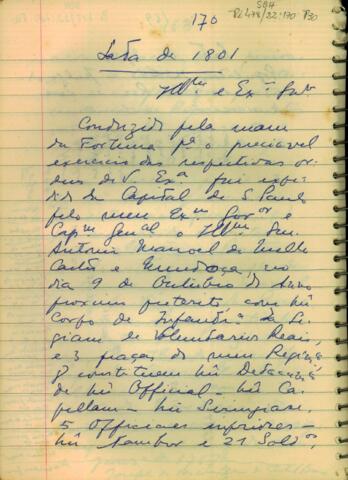 170
SBH
Pi 478/22:170 P30
Lata de 1801
Illmº e Exmº Snr
Conduzido pela mam
da Fortuna pª o preciavel
exercicio das respectivas or
dens de V. Exª fui expe
dido da Capital de S. Paulo
pelo meu Exmº Govor e
Capm Genal o Illmº Snr
Antonio Manoel de Mello
Castro e Mendoça, no
dia 9 de Outubro do Anno
proximo preterito, com hũ
Corpo de Infantrª da Le
giam de Voluntarios Reais,
e 3 praças do meu Regimto
q constituem hũ Destacamto
de hũ Official - hũ Ca
pellam - hũ Sirurgiam
5 Officiaes inferiores -
hũ tambor e 21 Soldos,